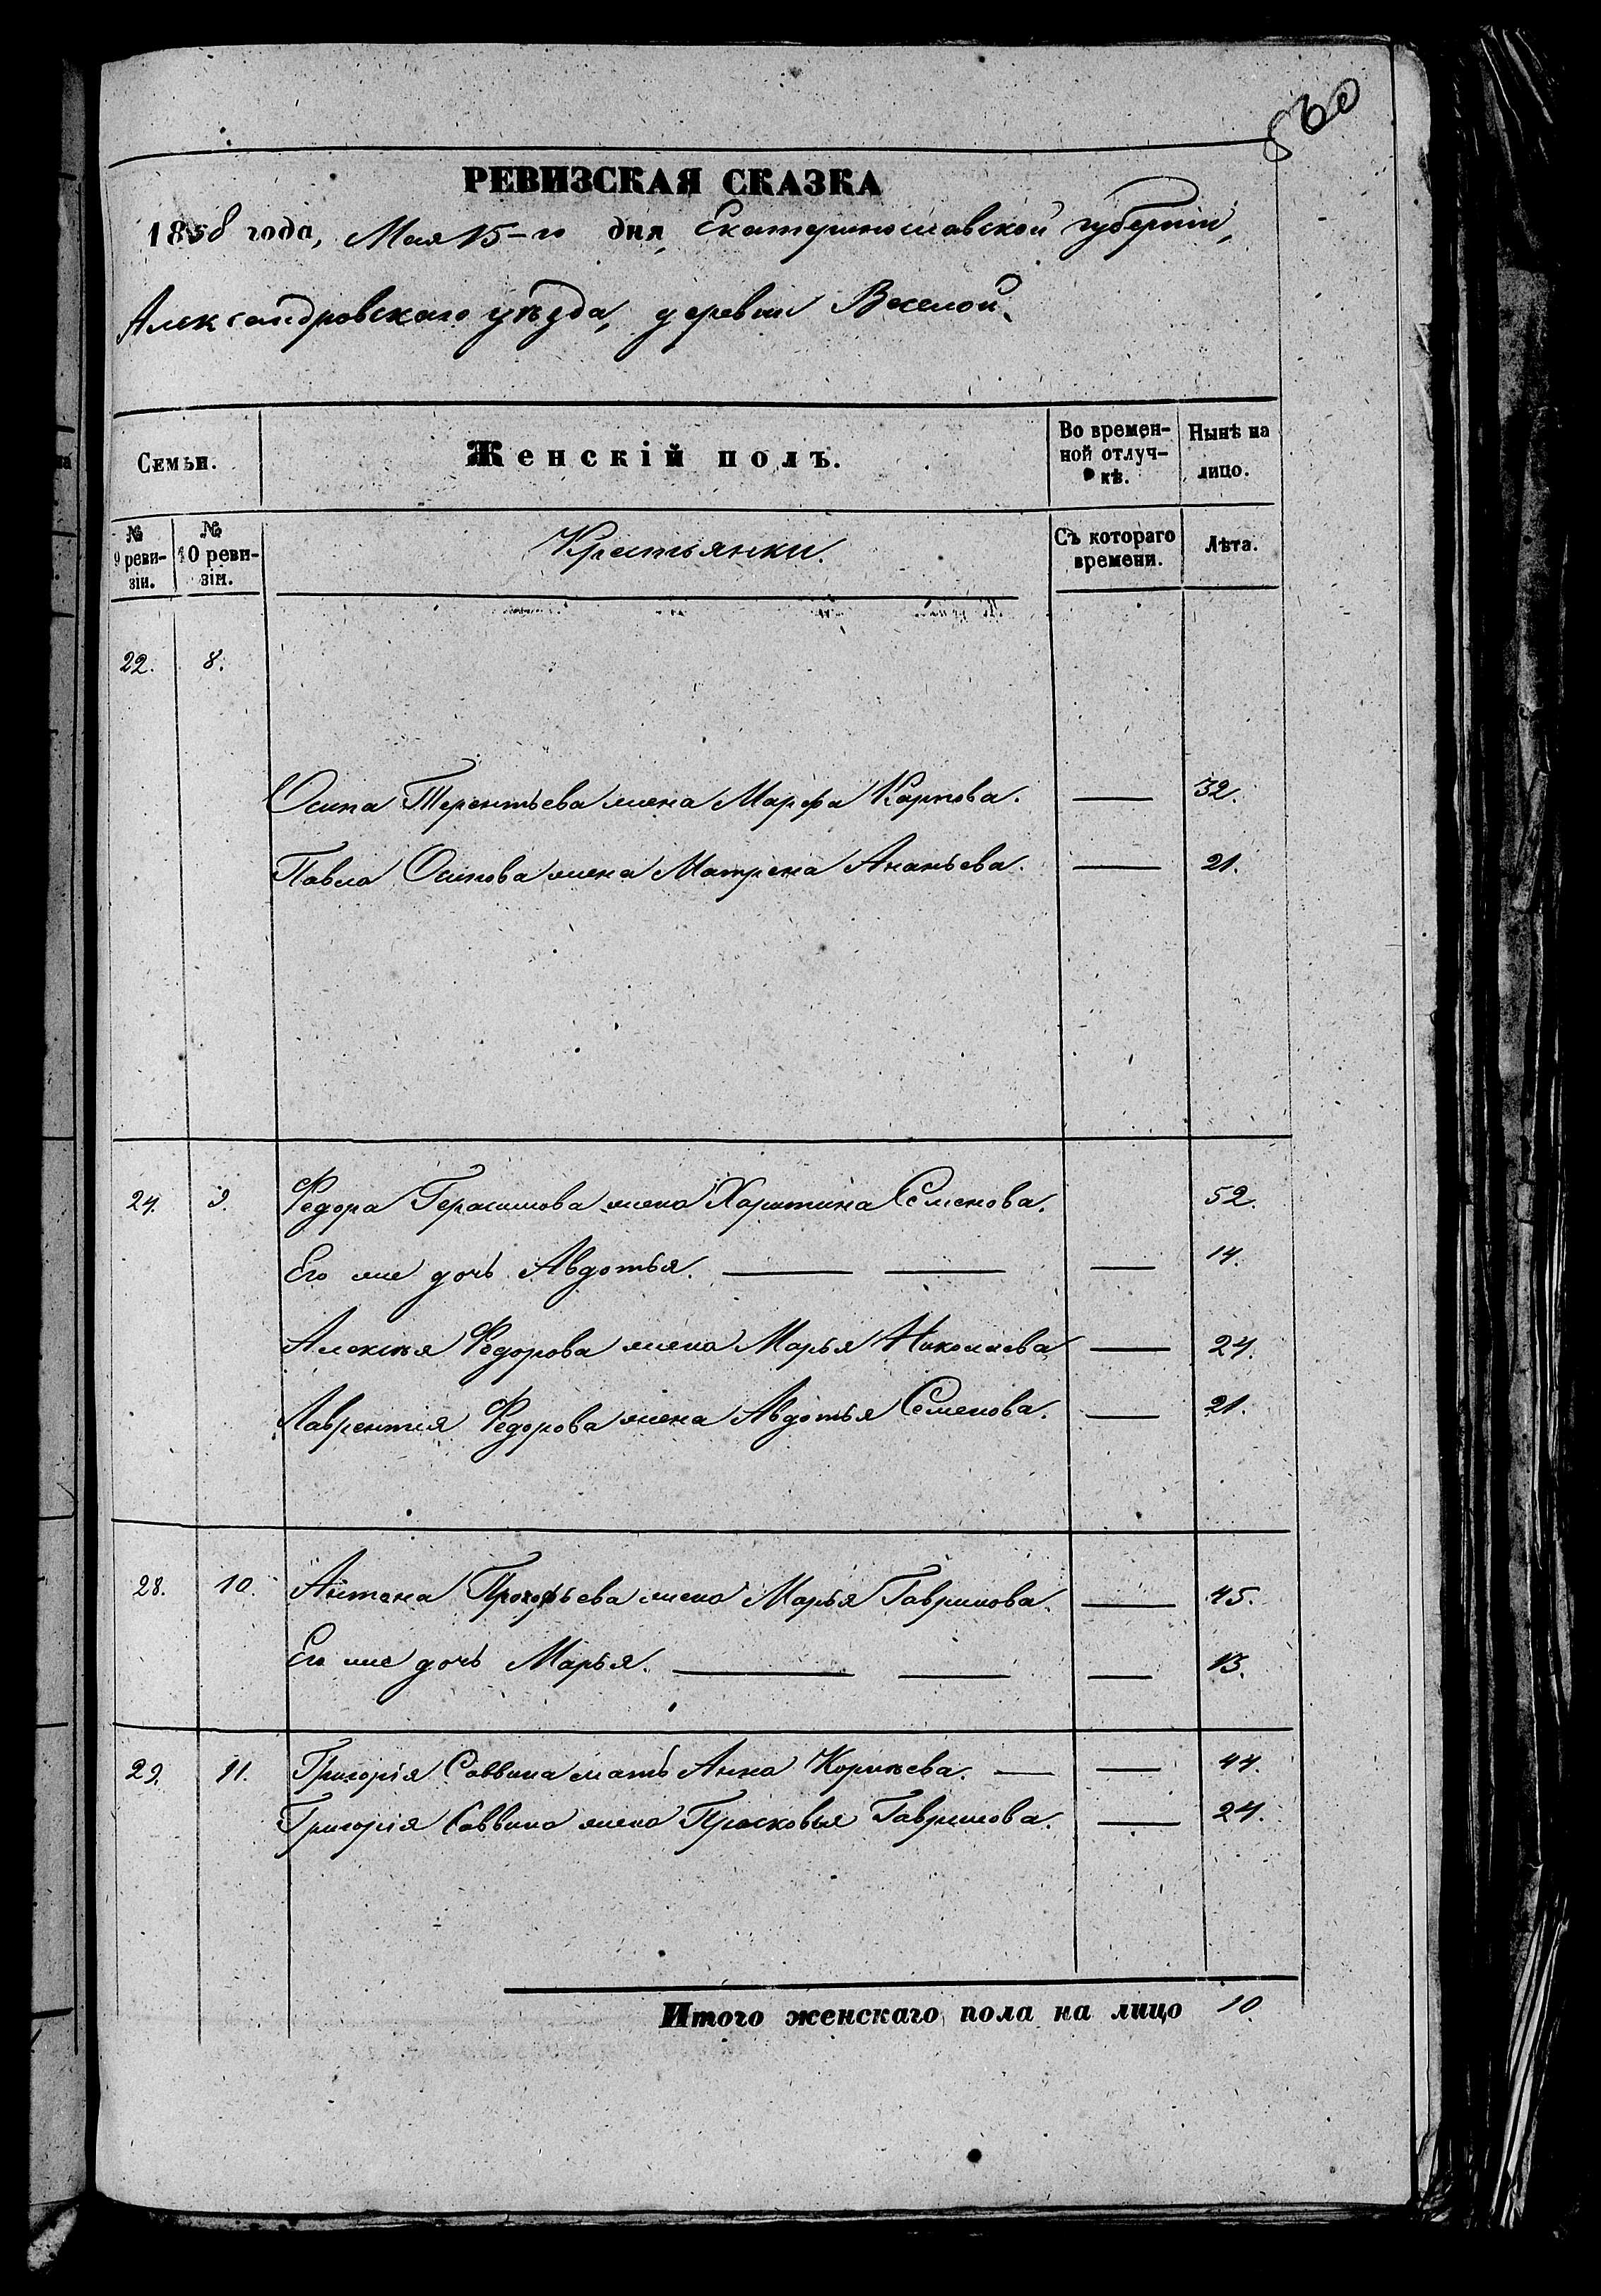 860
РЕВИЗСКАЯ СКАЗКА
1858 года, Мая 15-го дня, Екатеринославской губернии,
Александровского уѣзда, деревни Веселой.
Семьи. Женскій полъ. Во времен-ной отлуч-кѣ. Нынѣ на лицо.
№ 9 реви-зіи. № 10 реви-зіи. Крестьянки. Съ котораго времени. Лѣта.
22. 8.
Осипа Терентьева жена Марфа Карпова. — 32.
Павла Осипова жена Матрена Ананьева. — 21.
24. 9. Федора Герасимова жена Харитина Семенова. 52.
Его же дочь Авдотья. — — — 14.
Алексѣя Федорова жена Марья Николаева — 24.
Лаврентія Федорова жена Авдотья Семенова. — 21.
28. 10. Антона Прокофьева жена Марья Гаврилова. — 45.
Его же дочь Марья. — — — 13.
29. 11. Григорія Саввина мать Анна Корнѣева. — — 44.
Григорія Саввина жена Прасковья Гаврилова. — 24.
Итого женскаго пола на лицо 10.